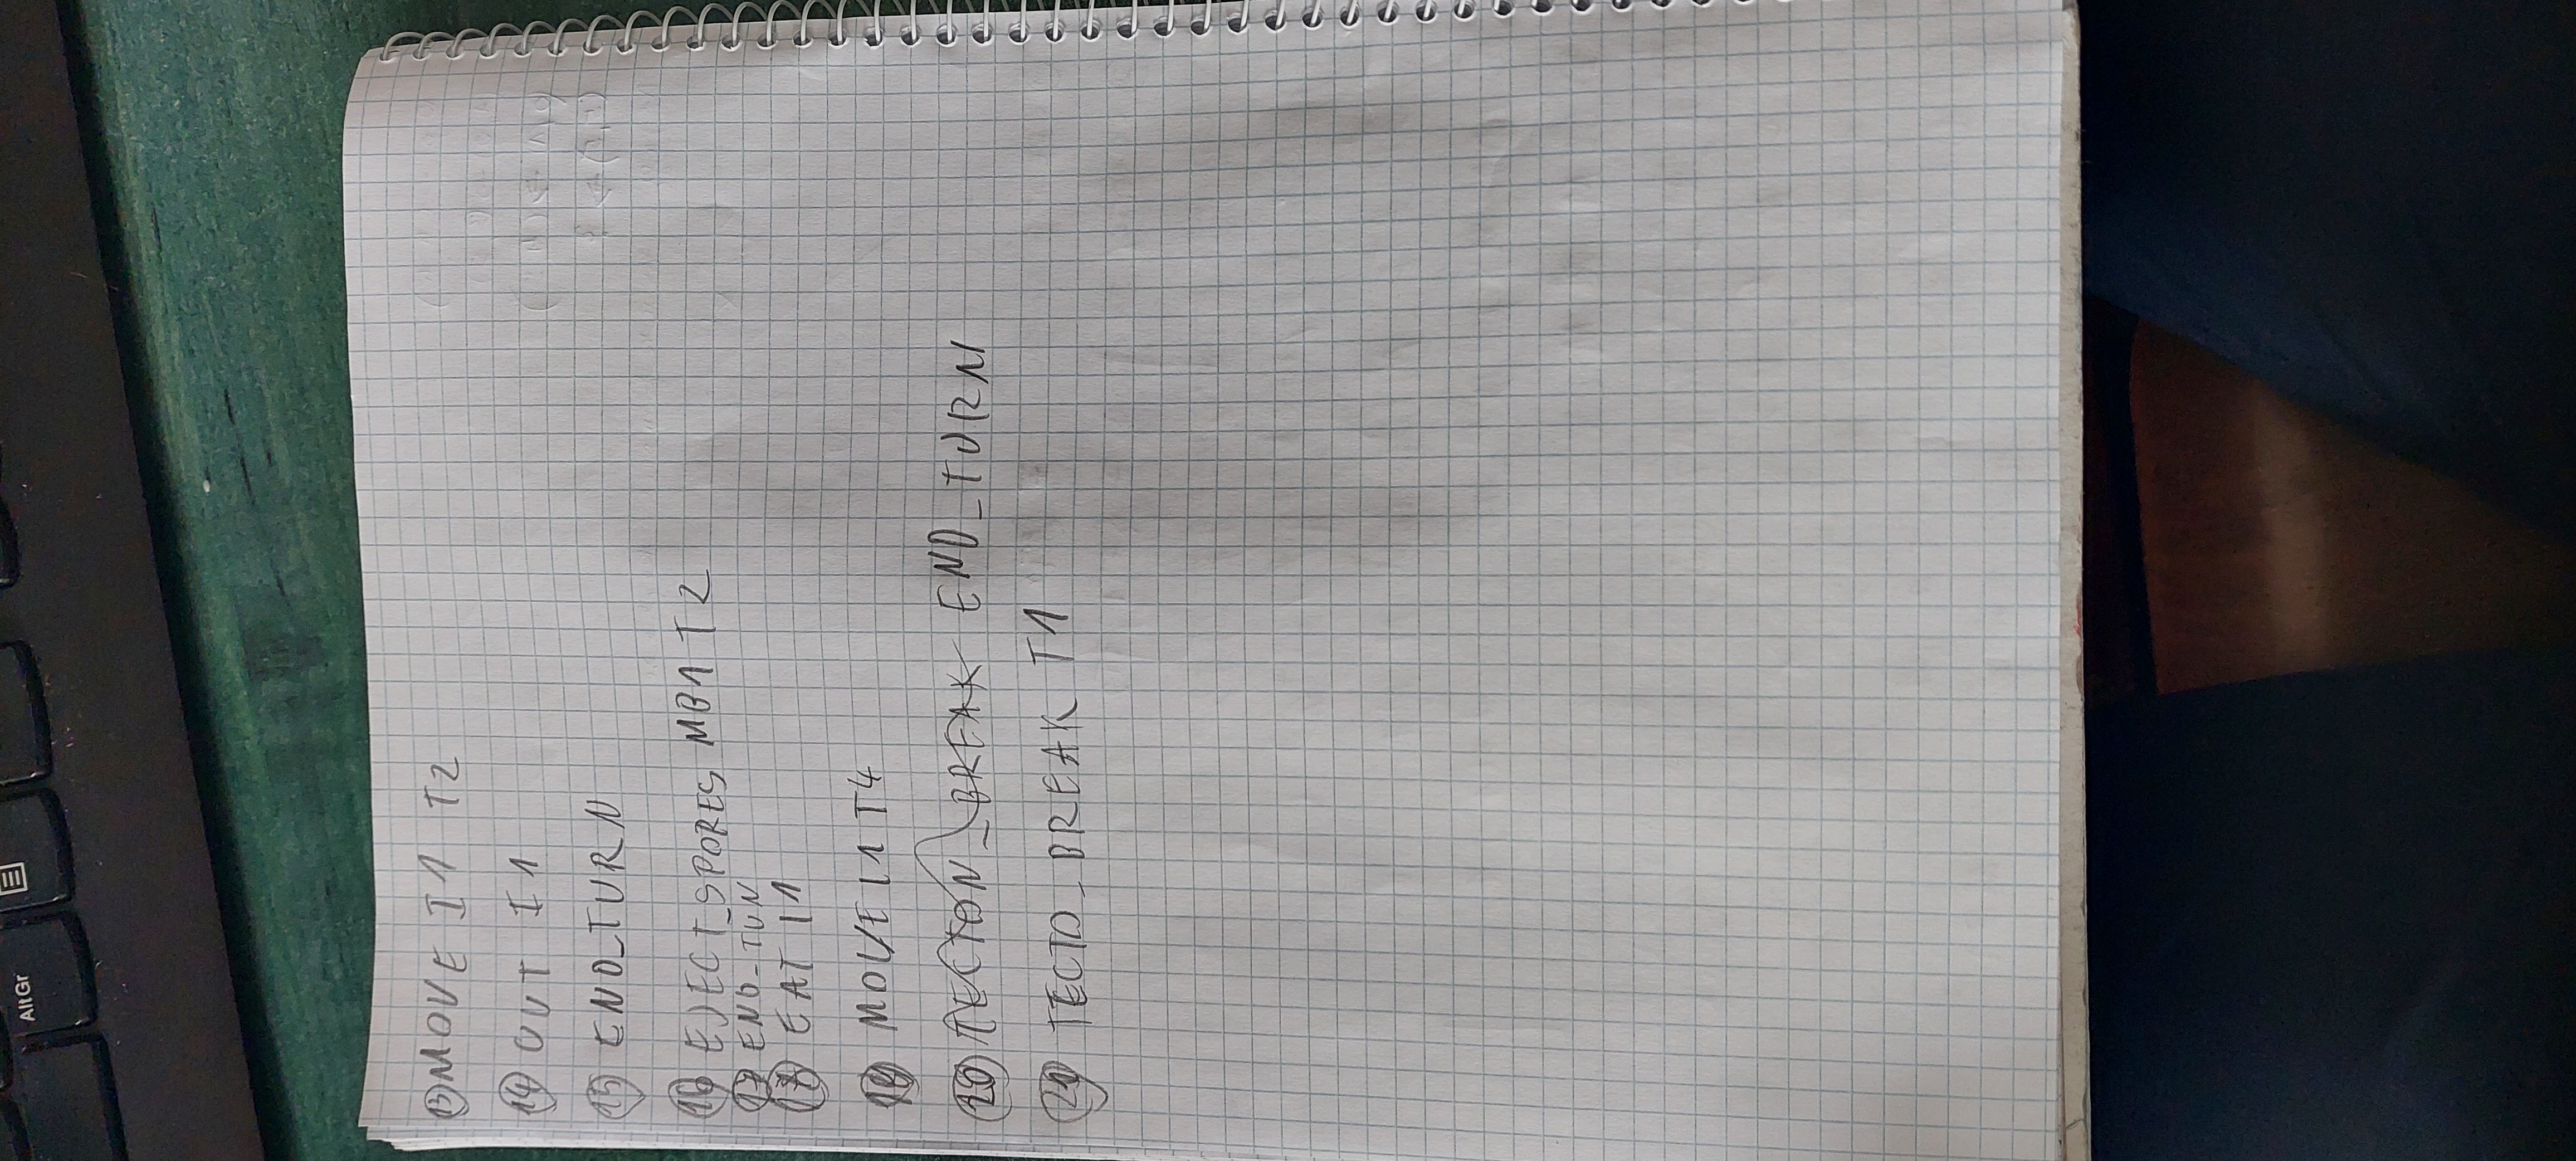 AltGr
13 MOVE I1 T2
14 OUT I1
15 END_TURN
16 EJECT_SPORES MB1 T2
17 END_TUN
18 EAT I1
19 MOVE I1 T4
20 TECTON_BREAK END_TURN
21 TECTO_BREAK T1